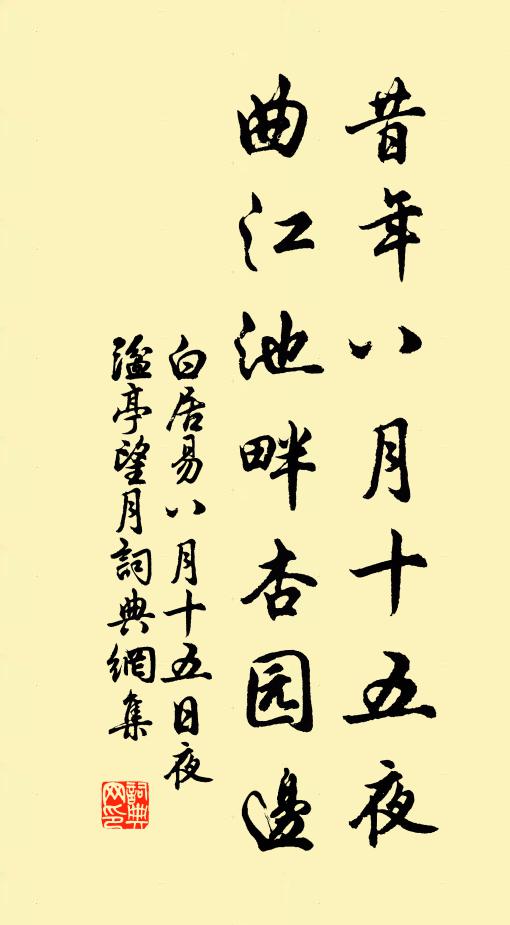 昔年八月十五夜
曲江池畔杏园邊
白居易八月十五日夜
湓亭望月詞典網集
詞典网印